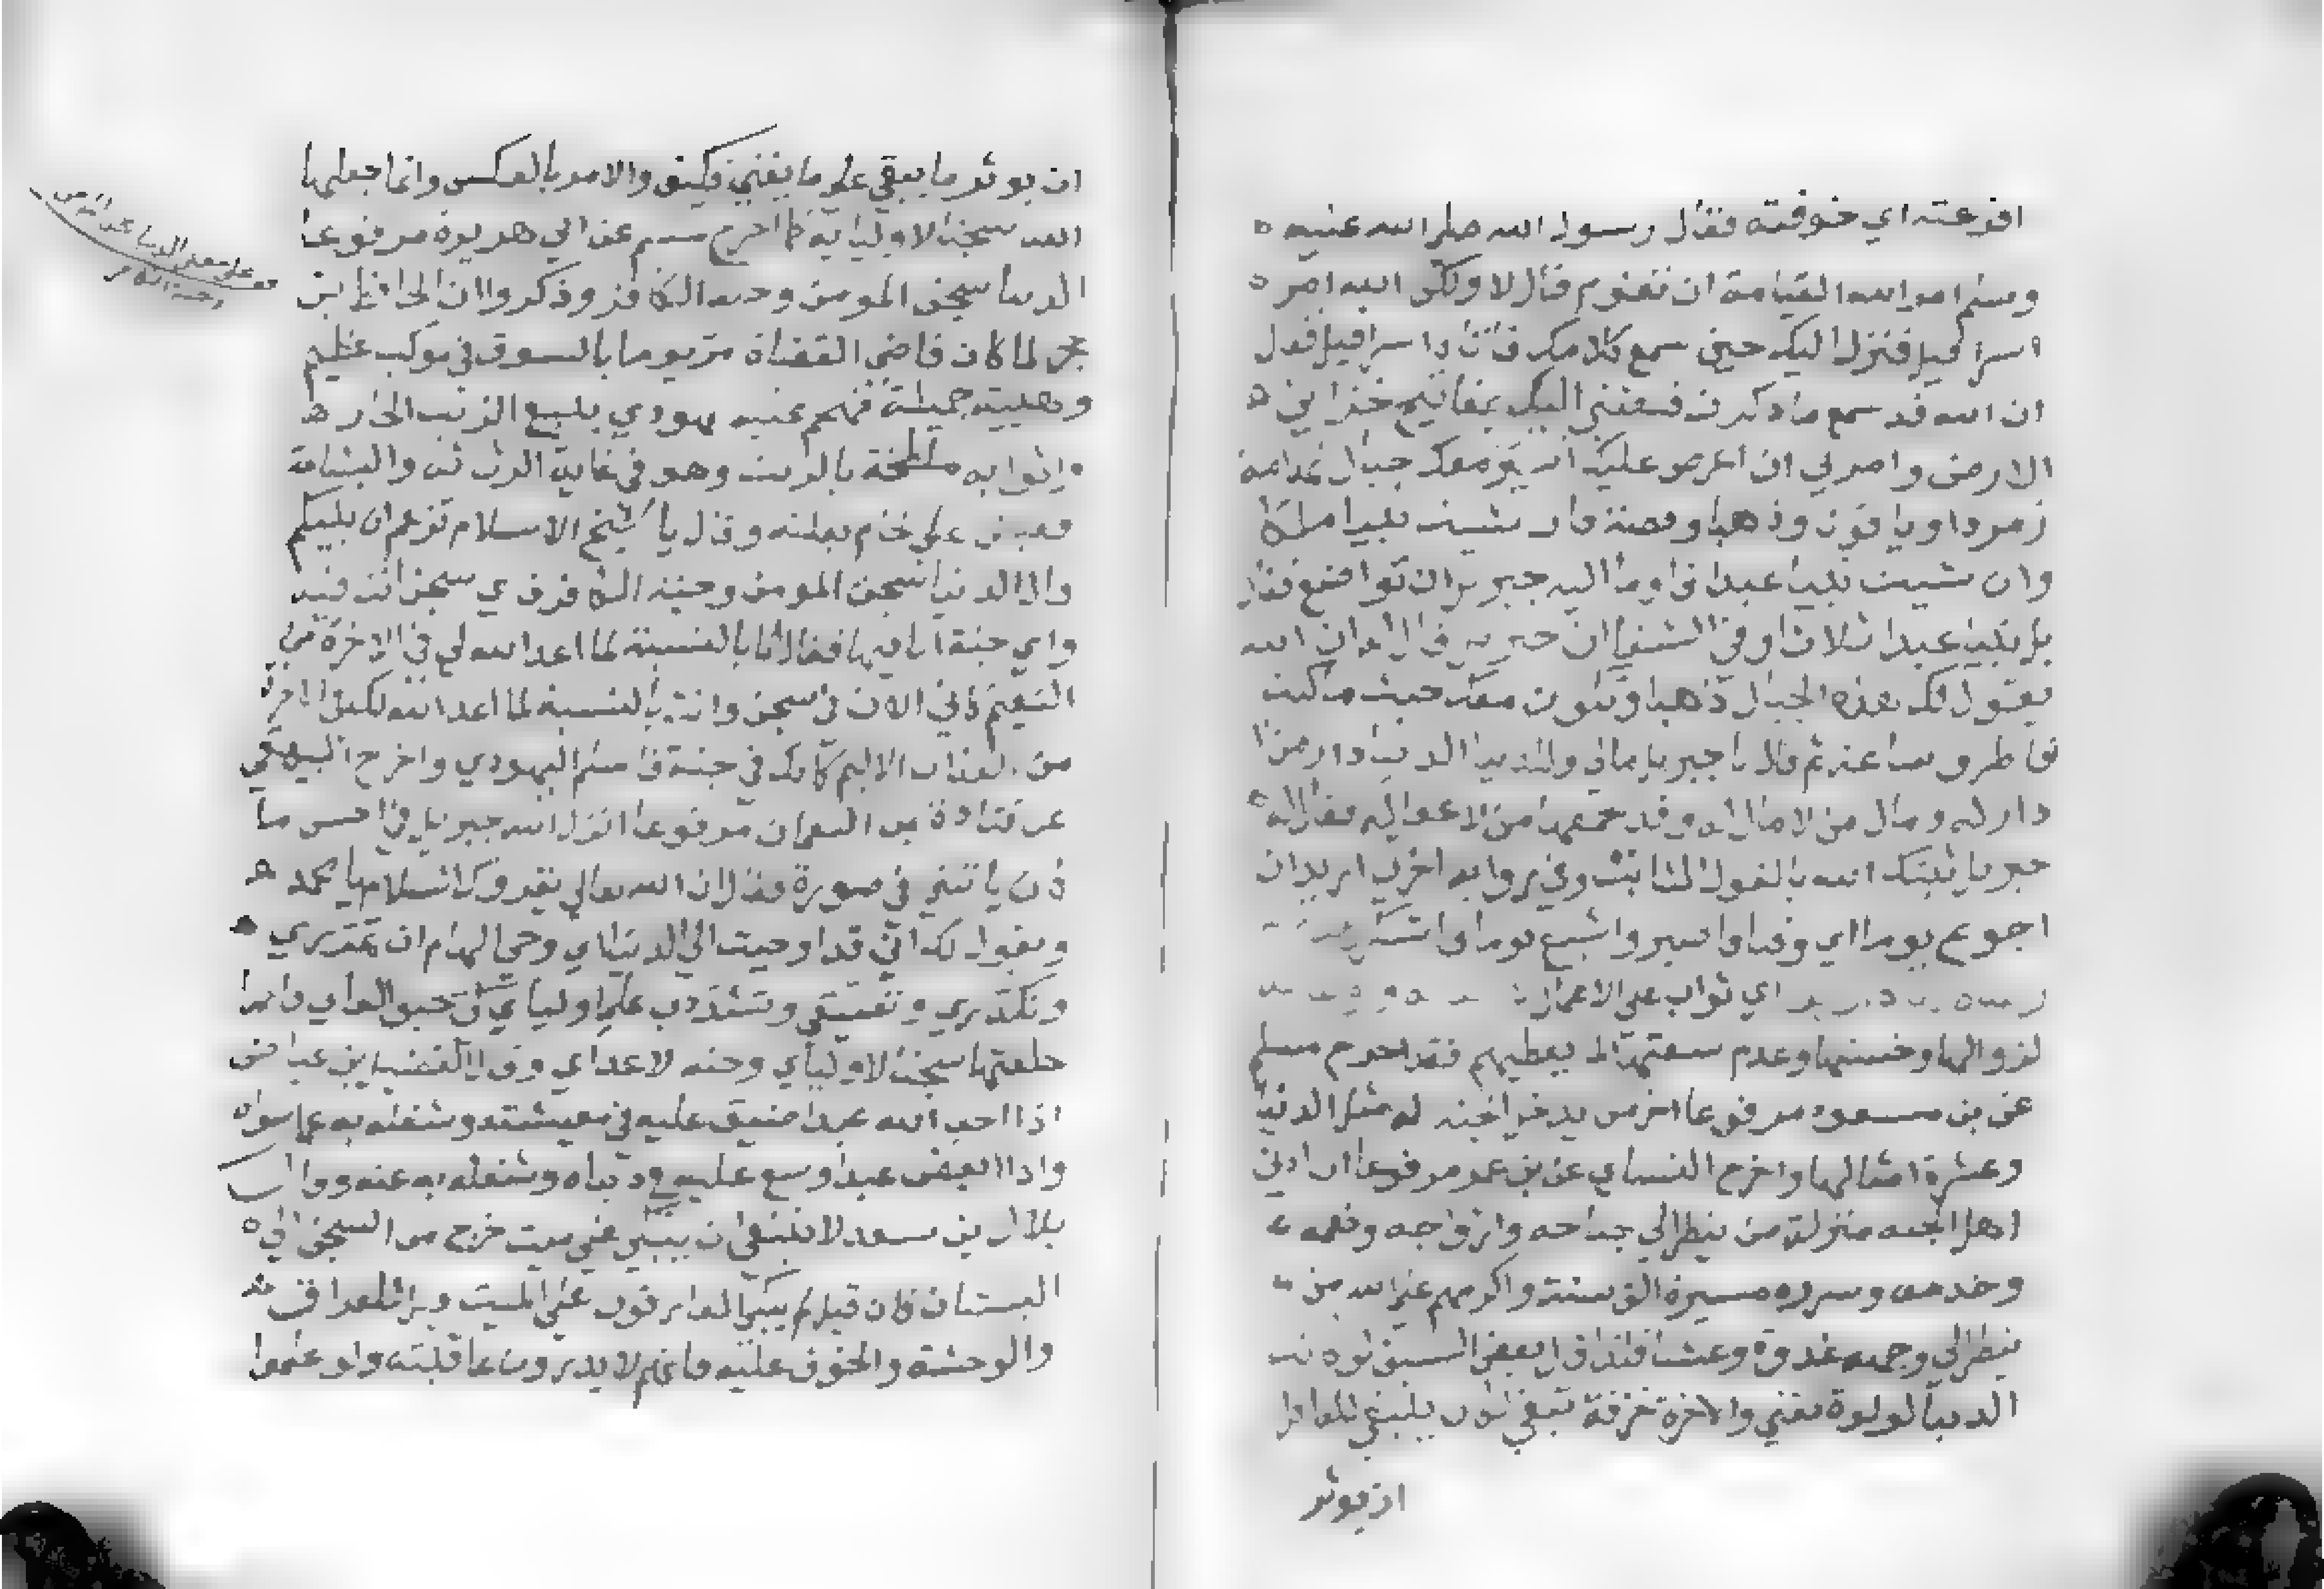 افزعته اي خوفته فقال رسول الله صلى الله عليه
وسلم امر الله القيامة ان تقوم قال لا ولكن الله امر
اسرافيل فنزل اليك حين سمع كلامك فاتاه اسرافيل فقال
ان الله قد سمع ما ذكرت فبعثني اليك بمفاتيح خزاين
الارض وامرني ان اعرض عليك ان اسير معك جبال تهامة
زمردا وياقوت وذهبا وفضة فان شيت نبيا ملكا
وان شيت نبيا عبدا فاوما اليه جبريل ان تواضع فقال
بل نبيا عبدا ثلاثا وفي الشفا ان جبريل قال له ان الله
يقول لك هذه الجبال ذهبا وتكون معك حيث ما كنت
فاطرق ساعة ثم قال يا جبريل مالي وللدنيا الدنيا دار من لا
دار له ومال من لا مال له وقد يجمعها من لا عقل له فقال له
جبريل ثبتك الله بالقول الثابت وفي رواية اخرى اريد ان
اجوع يوما اي وقتا واصبر واشبع يوما
اي ثواب على الاعمال
لزوالها وخستها وعدم سعتها لما يعطيهم فقد اخرج مسلم
عن بن مسعود مرفوعا اخر من يدخل الجنة له مثل الدنيا
وعشرة امثالها واخرج النساي عن بن عمر مرفوعا ان ادنى
اهل الجنة منزلة من ينظر الى جنانه وازواجه ونعمه
وخدمه وسرره مسيرة الف سنة واكرمهم على الله من
ينظر الى وجهه غدوة وعشيا فلذا قال بعض السلف لو كانت
الدنيا لولوة تفنى والاخرة خزفة تبقى لكان ينبغي للعاقل
ان يوثر
ان يوثر ما يبقى على ما يفنى فكيف والامر بالعكس وانما جعلها
الله سجنا لاوليايه لما اخرج مسلم عن ابي هريرة مرفوعا
الدنيا سجن المومن وجنة الكافر وذكروا ان الحافظ بن
حجر لما كان قاضي القضاة مر يوما بالسوق في موكب عظيم
وهيية جميلة فهجم عليه يهودي يبيع الزيت الحار
واثوابه ملطخة بالزيت وهو في غاية الرثاثة والبشاعة
فقبض على لجام بغلته وقال يا شيخ الاسلام تزعم ان نبيكم
قال الدنيا سجن المومن وجنة الكافر فاي سجن انت فيه
واي جنة انا فيها فقال انا بالنسبة لما اعد الله لي في الاخرة من
النعيم كاني الان في سجن وانت بالنسبة لما اعد الله لك في الاخرة
من العذاب الاليم كانك في جنة فاسلم اليهودي واخرج البيهقي
عن قتادة بن النعمان مرفوعا انزل الله جبريل في احسن ما
كان ياتيني في صورة فقال ان الله تعالى يقروك السلام يا محمد
ويقول لك اني قد اوحيت الى الدنيا اي وحي الهام ان تمرري
وتكدري وتضيقي وتشددي على اوليائي كي يحبوا لقاي فاني
خلقتها سجنا لاوليائي وجنة لاعداي وقال الفضيل بن عياض
اذا احب الله عبدا ضيق عليه في معيشته وشغله به عما سواه
واذا ابغض عبدا وسع عليه في دنياه وشغله به عنه وقال
بلال بن سعد لا ينبغي ان يبكى على ميت خرج من السجن الى
البستان فان قيل لم يبكي العارفون على الميت قيل للفراق
والوحشة والخوف عليه فانهم لا يدرون عاقبته ولو علموا